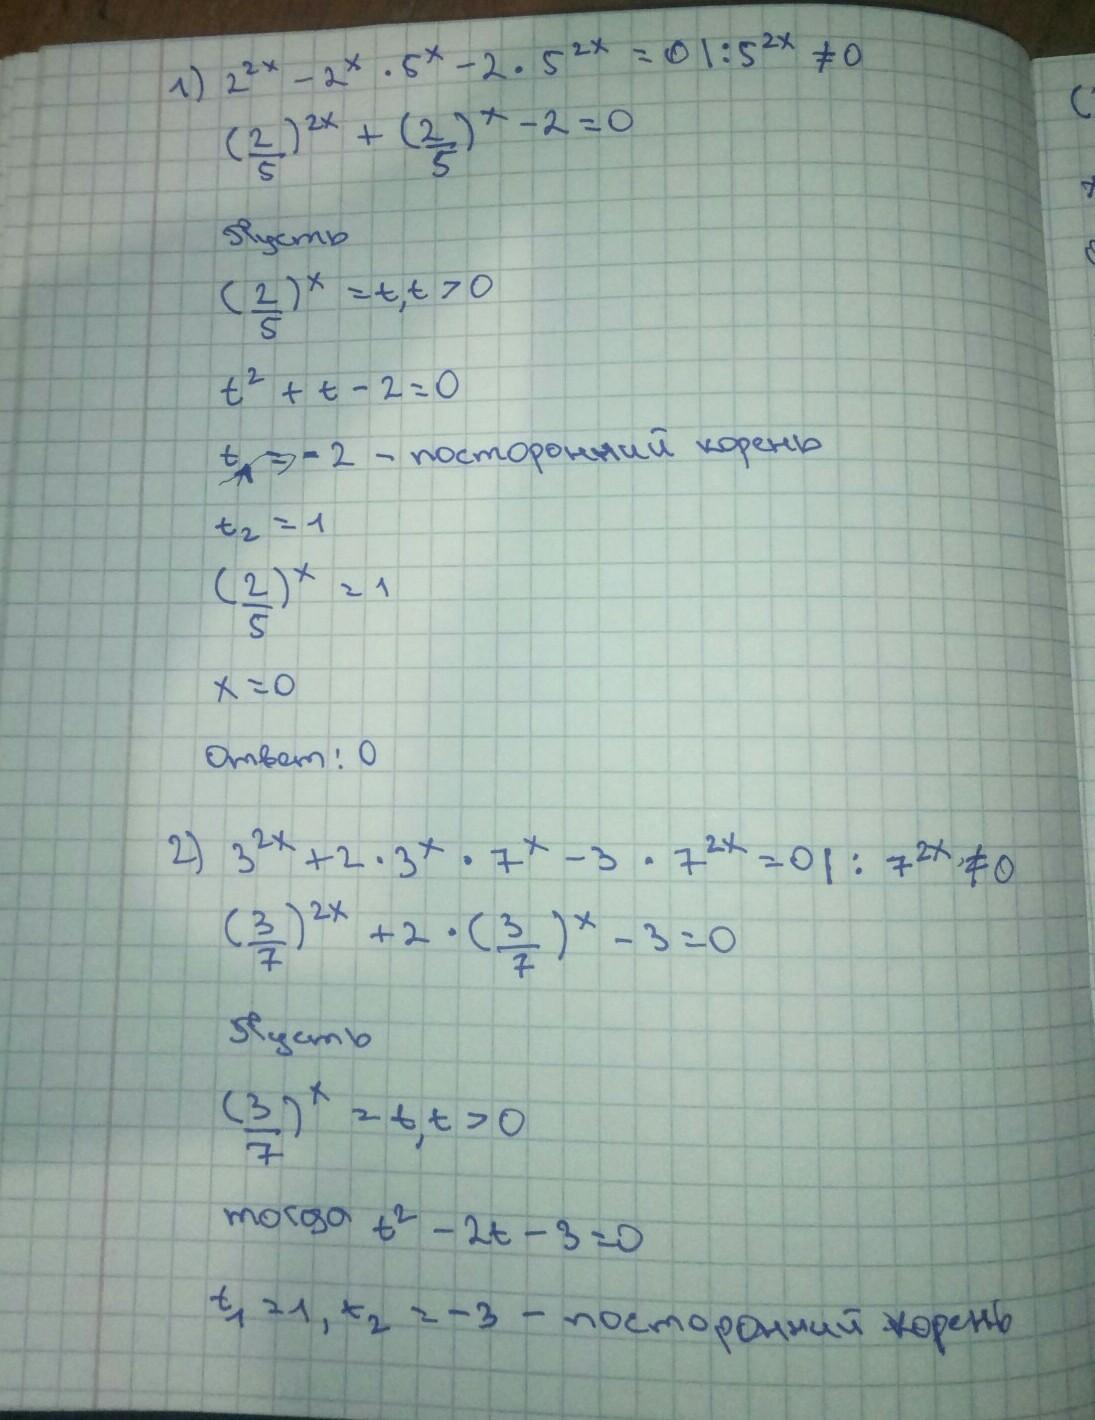 1) 2^{2x} - 2^x · 5^x - 2 · 5^{2x} = 0 | : 5^{2x} ≠ 0
(2/5)^{2x} + (2/5)^x - 2 = 0
Пусть
(2/5)^x = t, t > 0
t² + t - 2 = 0
t₁ = -2 - посторонний корень
t₂ = 1
(2/5)^x = 1
x = 0
Ответ: 0
2) 3^{2x} + 2 · 3^x · 7^x - 3 · 7^{2x} = 0 | : 7^{2x} ≠ 0
(3/7)^{2x} + 2 · (3/7)^x - 3 = 0
Пусть
(3/7)^x = t, t > 0
тогда t² - 2t - 3 = 0
t₁ = 1, t₂ = -3 - посторонний корень